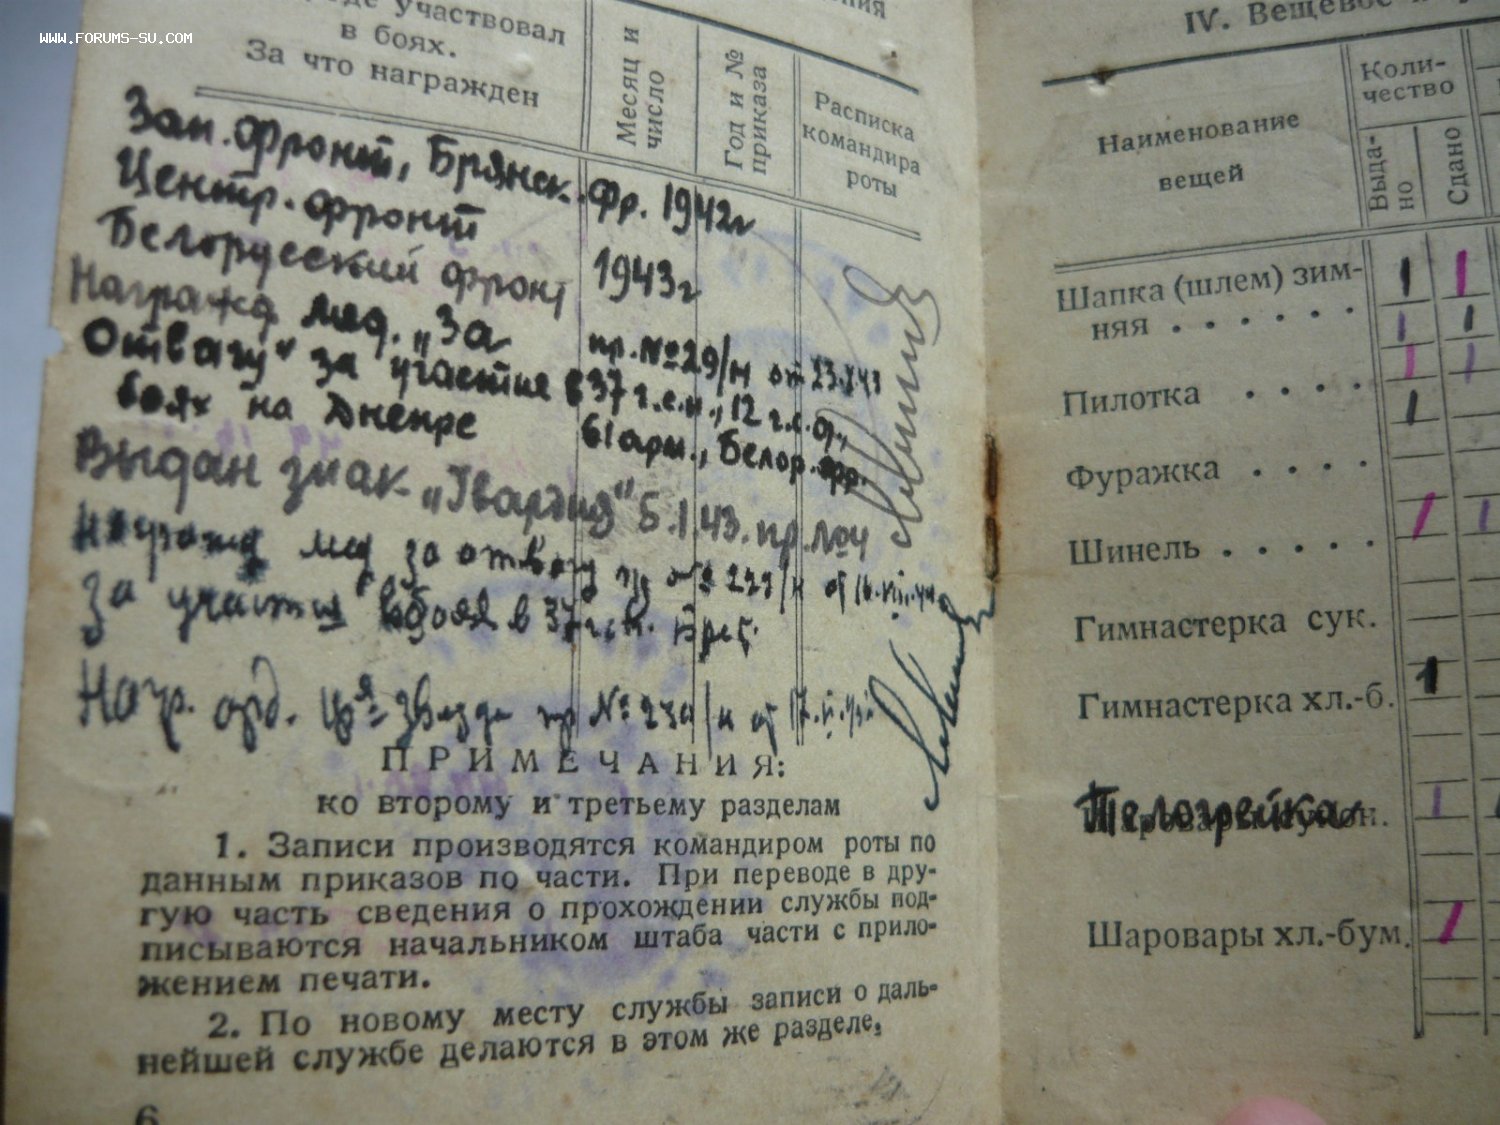 WWW.FORUMS-SU.COM
участвовал
в боях.
За что награжден
Месяц и
число
Год и №
приказа
Расписка
командира
роты
Зап. фронт, Брянск. фр. 1942г
Центр. фронт
Белорусский фронт 1943г
Награжд. мед. „За
Отвагу" за участие в боях на Днепре
пр. №29/н от
37 г.с.п., 12 г.с.д.,
61 арм., Белор. фр.
Выдан знак „Гвардия" 5.1.43. пр. №4
Награжд мед за отвагу пр
за участие в боях в 37 гсп.
Нагр. орд. Кр-я звезда пр №
ПРИМЕЧАНИЯ:
ко второму и третьему разделам
1. Записи производятся командиром роты по
данным приказов по части. При переводе в дру-
гую часть сведения о прохождении службы под-
писываются начальником штаба части с прило-
жением печати.
2. По новому месту службы записи о даль-
нейшей службе делаются в этом же разделе.
6
IV. Вещевое
Наименование
вещей
Коли-
чество
Выда-
но
Сдано
Шапка (шлем) зим-
няя . . . . . .
Пилотка . . . .
Фуражка . . . .
Шинель . . . . .
Гимнастерка сук.
Гимнастерка хл.-б.
Телогрейка
Шаровары хл.-бум.